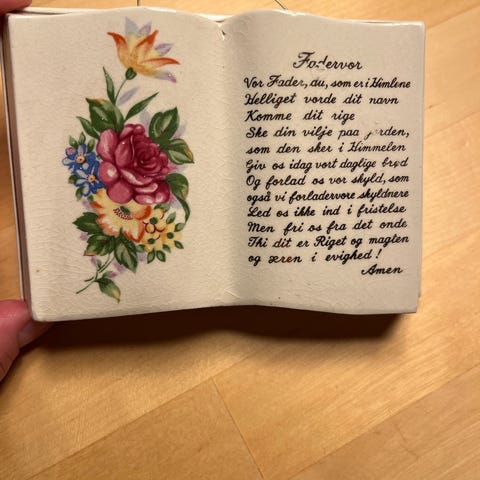 Fadervor
Vor Fader, du, som er i Himlene
Helliget vorde dit navn
Komme dit rige
Ske din vilje paa jorden,
som den sker i Himmelen
Giv os idag vort daglige brød
Og forlad os vor skyld, som
også vi forladervore skyldnere
Led os ikke ind i fristelse
Men fri os fra det onde
Thi dit er Riget og magten
og æren i evighed!
Amen